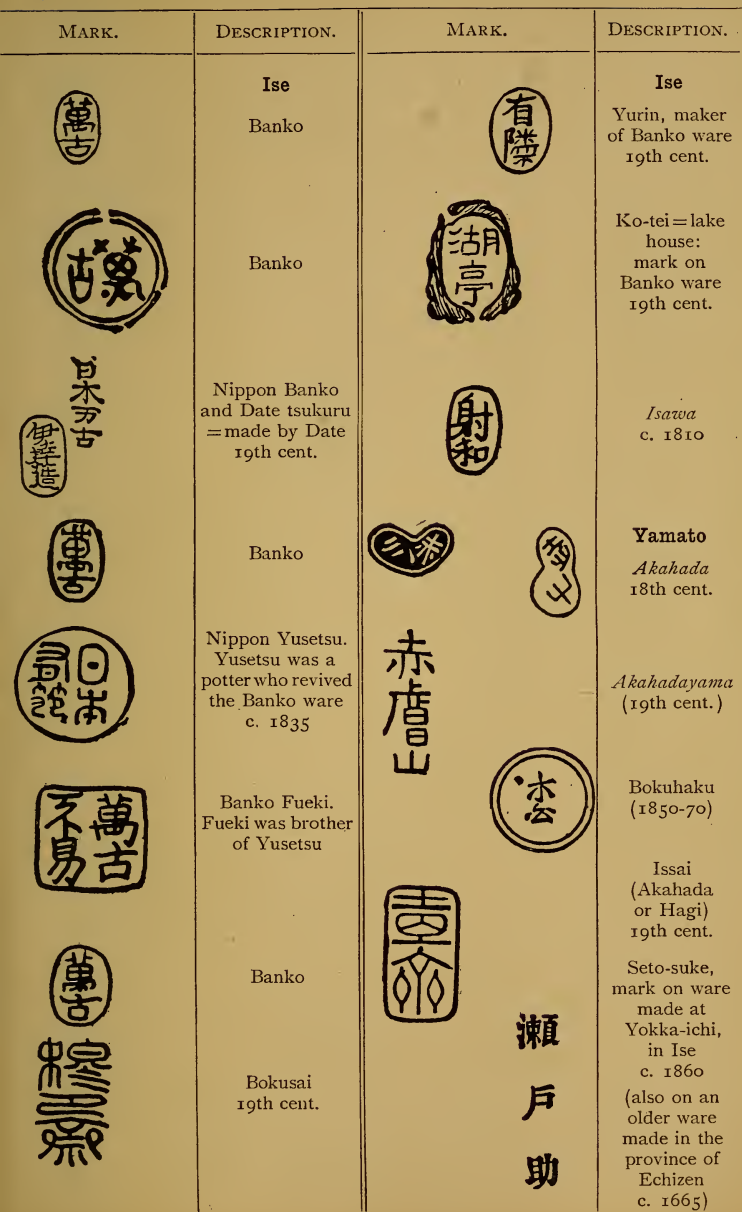 MARK.
DESCRIPTION.
Ise
萬古
Banko
萬古
Banko
日本万古
伊達造
Nippon Banko
and Date tsukuru
=made by Date
19th cent.
萬古
Banko
日本
有節
Nippon Yusetsu.
Yusetsu was a
potter who revived
the Banko ware
c. 1835
萬古
不易
Banko Fueki.
Fueki was brother
of Yusetsu
萬古
Banko
Bokusai
19th cent.
MARK.
DESCRIPTION.
Ise
有隣
Yurin, maker
of Banko ware
19th cent.
湖亭
Ko-tei=lake
house:
mark on
Banko ware
19th cent.
射和
Isawa
c. 1810
Yamato
Akahada
18th cent.
赤膚山
Akahadayama
(19th cent.)
Bokuhaku
(1850-70)
Issai
(Akahada
or Hagi)
19th cent.
瀬戸助
Seto-suke,
mark on ware
made at
Yokka-ichi,
in Ise
c. 1860
(also on an
older ware
made in the
province of
Echizen
c. 1665)